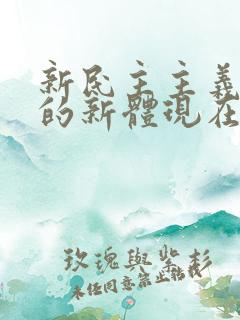 新民主主義
的新體現在
玫瑰與紫杉
未任同意禁止轉載